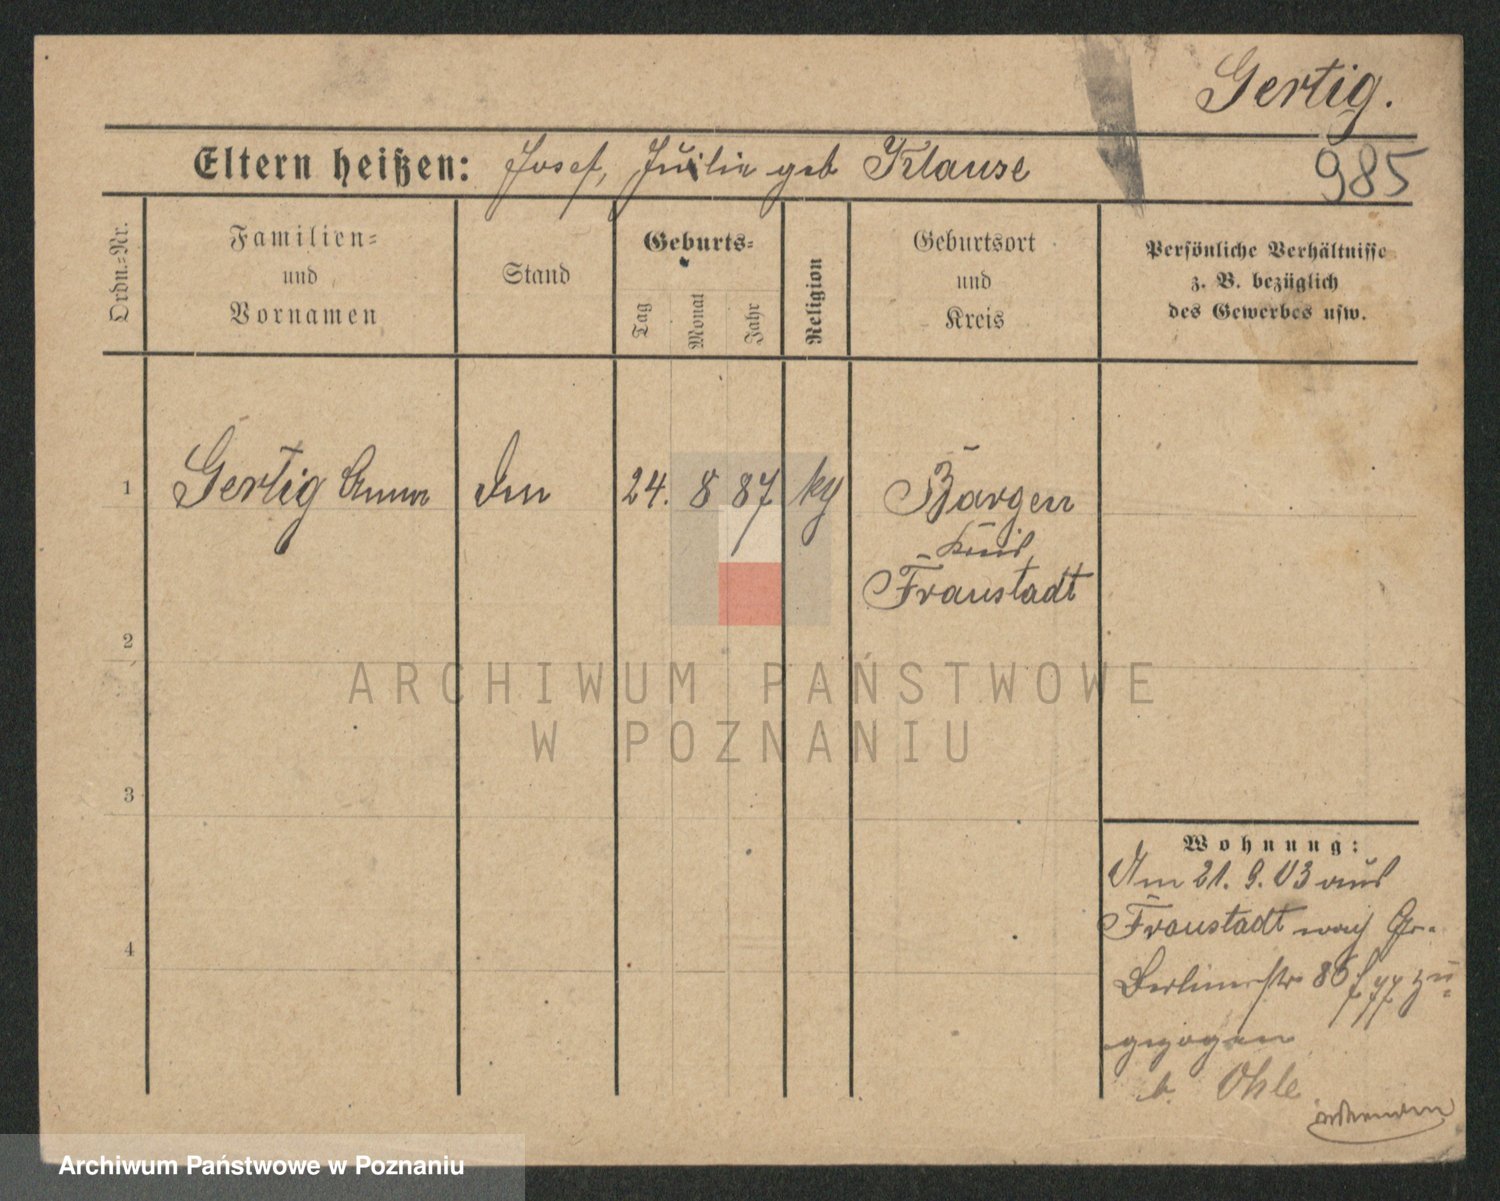 Gertig.
Eltern heißen: Josef, Julie geb Klause
985
Ordn.=Nr.
Familien=
und
Vornamen
Stand
Geburts=
Tag
Monat
Jahr
Religion
Geburtsort
und
Kreis
Persönliche Verhältnisse
z. B. bezüglich
des Gewerbes usw.
1 Gertig Anna 24. 8 87 Bargen
Kreis
Fraustadt
2
3
4
Wohnung:
Am 21. 9. 03 aus
Fraustadt nach
Berlinerstr 86 zu=
gezogen
b. Ohle
ARCHIWUM PAŃSTWOWE
W POZNANIU
Archiwum Państwowe w Poznaniu